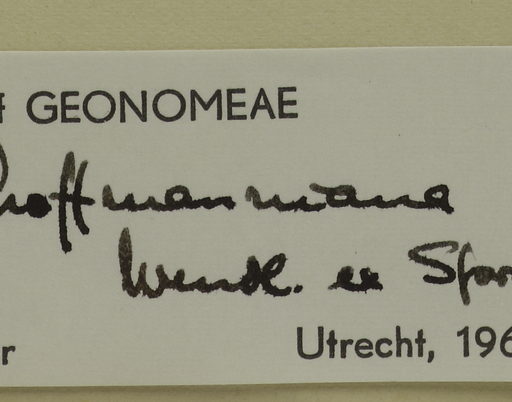 f GEONOMEAE
hoffmanniana
Wendl. ex Spr
r Utrecht, 196